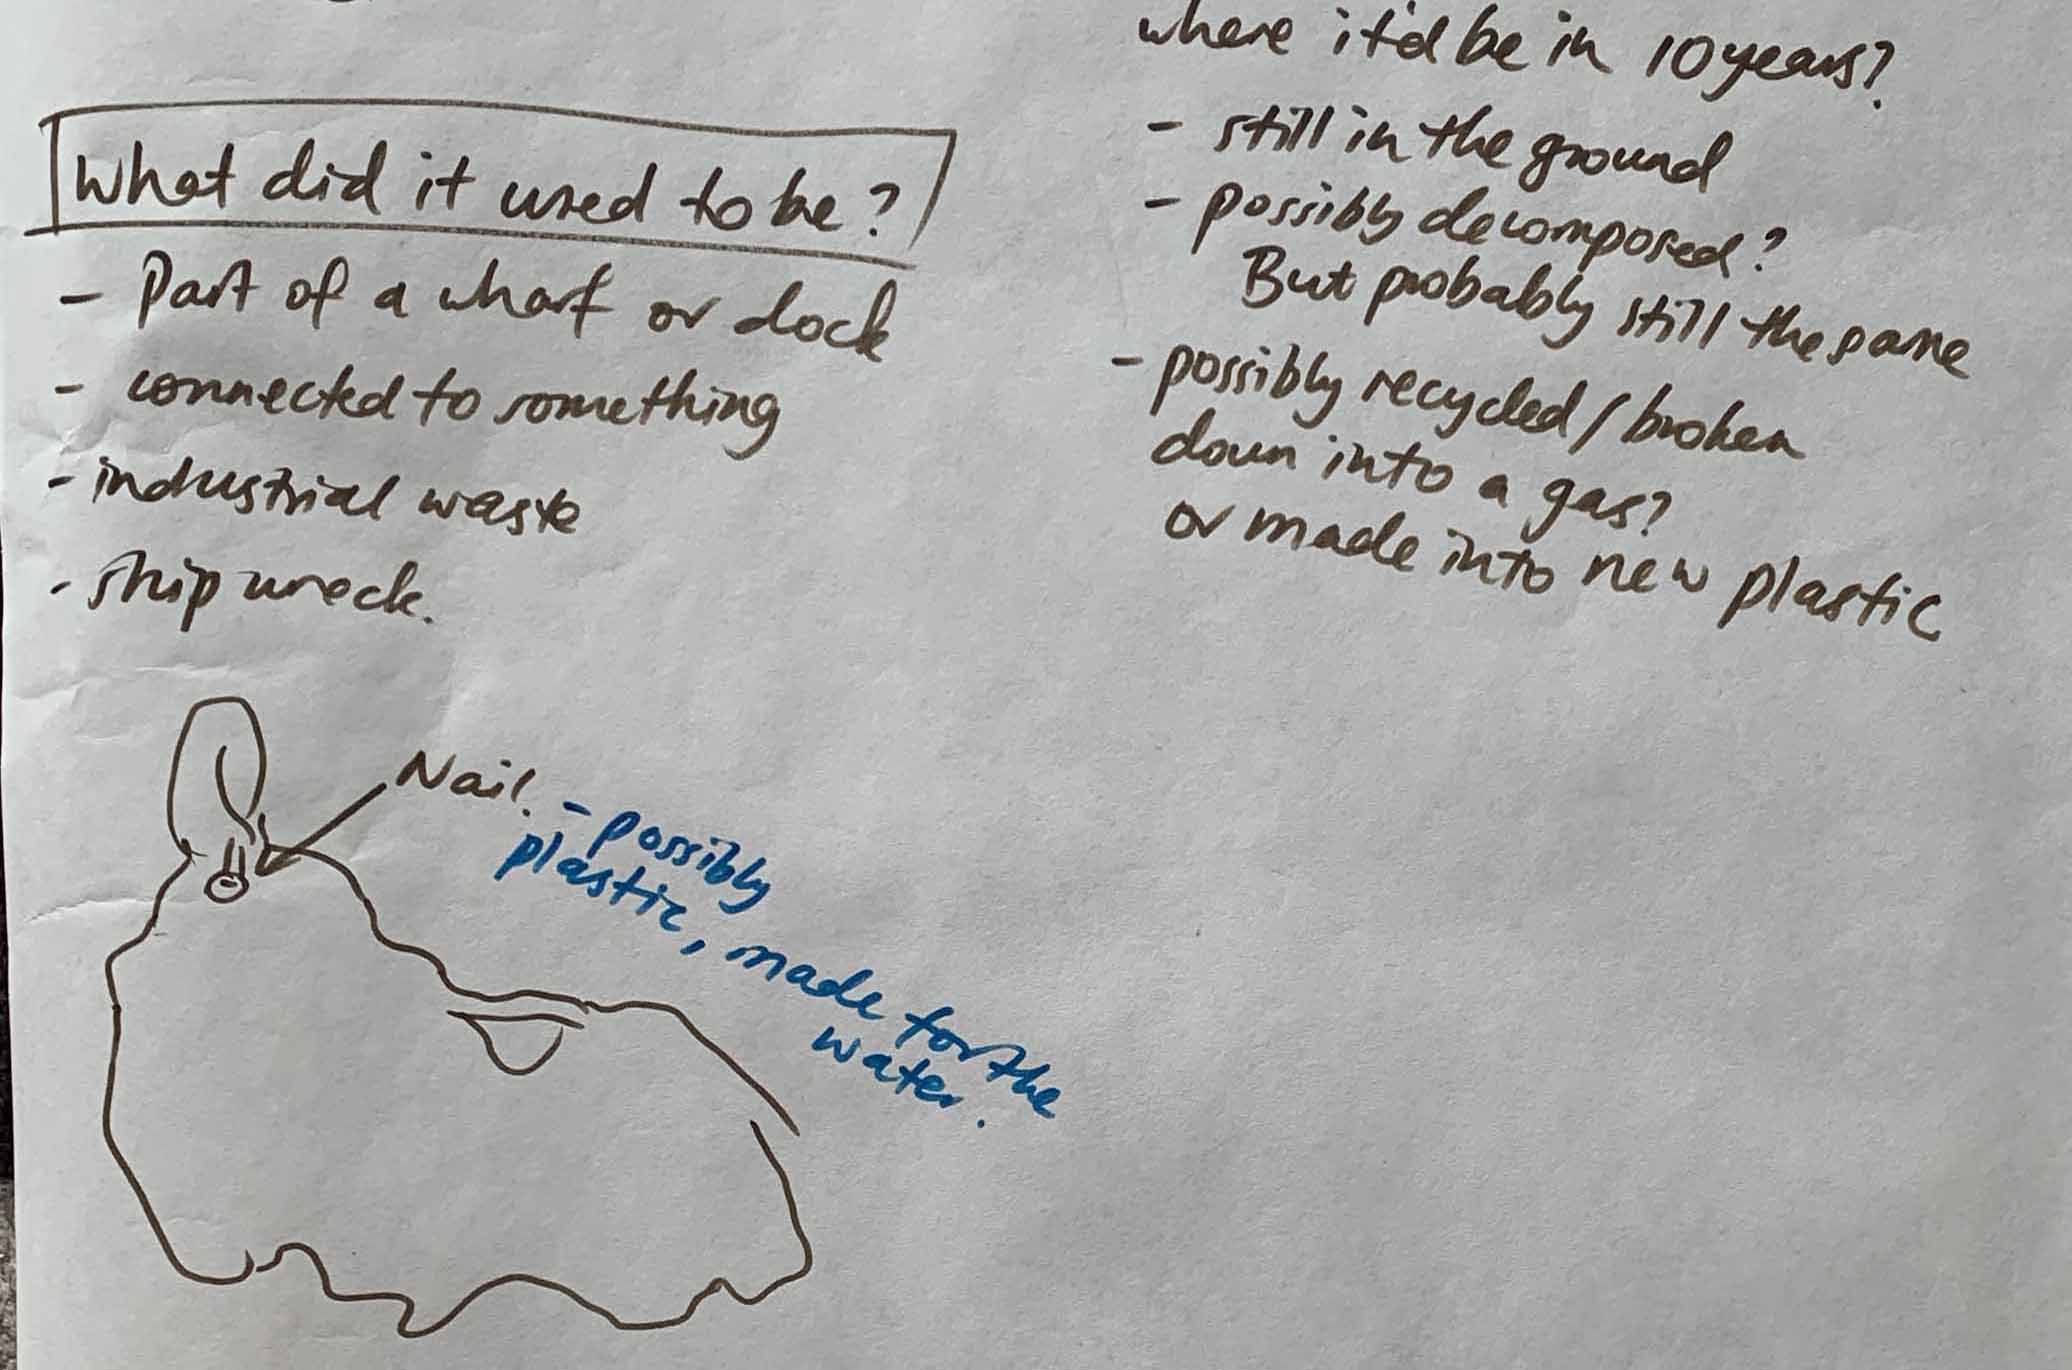 What did it used to be?
- Part of a wharf or dock
- connected to something
- industrial waste
- ship wreck.
Nail. - possibly
plastic, made for the
water.
where it'd be in 10 years?
- still in the ground
- possibly decomposed?
But probably still the same
- possibly recycled / broken
down into a gas?
or made into new plastic